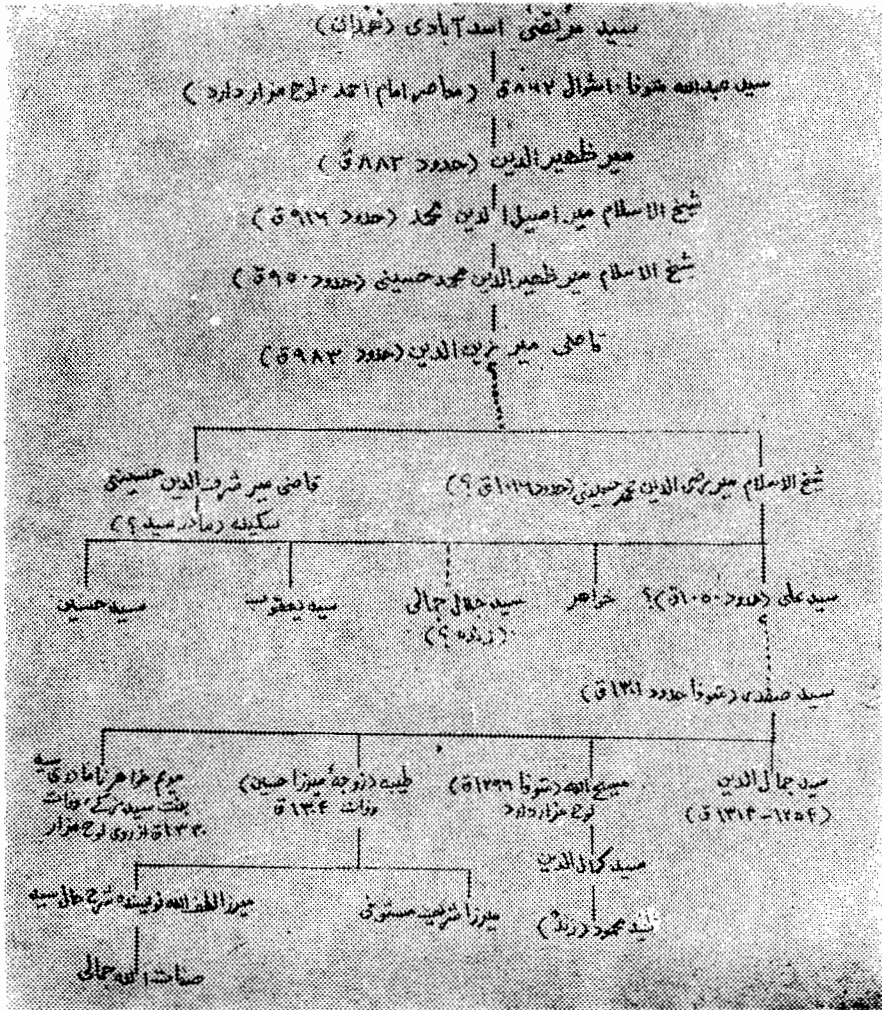 سید مرتضی اسدآبادی (همدان)
سید عبدالله متوفا ۰اشوال ۸۶۲ق (معاصر امام احمد ۰لوح مزار دارد)
میر ظهیرالدین (حدود ۸۸۲ق)
شیخ الاسلام میر اصیل الدین محمد (حدود ۹۱۶ق)
شیخ الاسلام میر ظهیرالدین محمد حسینی (حدود ۹۵۰ق)
قاضی میر زین الدین (حدود ۹۸۳ق)
شیخ الاسلام میر رضی الدین محمد حسینی (حدود ۱۰۱۶ق ؟)
قاضی میر شرف الدین حسینی
سکینه (مادر سید ؟)
سید علی (حدود ۱۰۵۰ق)؟
خواهر
سید جلال جمالی
(زنده ؟)
سید یعقوب
سید حسین
سید صفدر (متوفا حدود ۱۳۰۱ق)
سید جمال الدین
(۱۲۵۴-۱۳۱۴ق)
مسیح الله (متوفا ۱۲۹۶ق)
لوح مزار دارد
طیبه (زوجهٔ میرزا حسین)
وفات ۱۳۰۴ق
مریم خواهر نامادری سید
بنت سیده وفات
۱۳۳۰ق از روی لوح مزار
سید کمال الدین
سید محمود (زنده)
میرزا شریف مستوفی
میرزا لطف الله نویسنده شرح حال سید
صفات الله جمالی